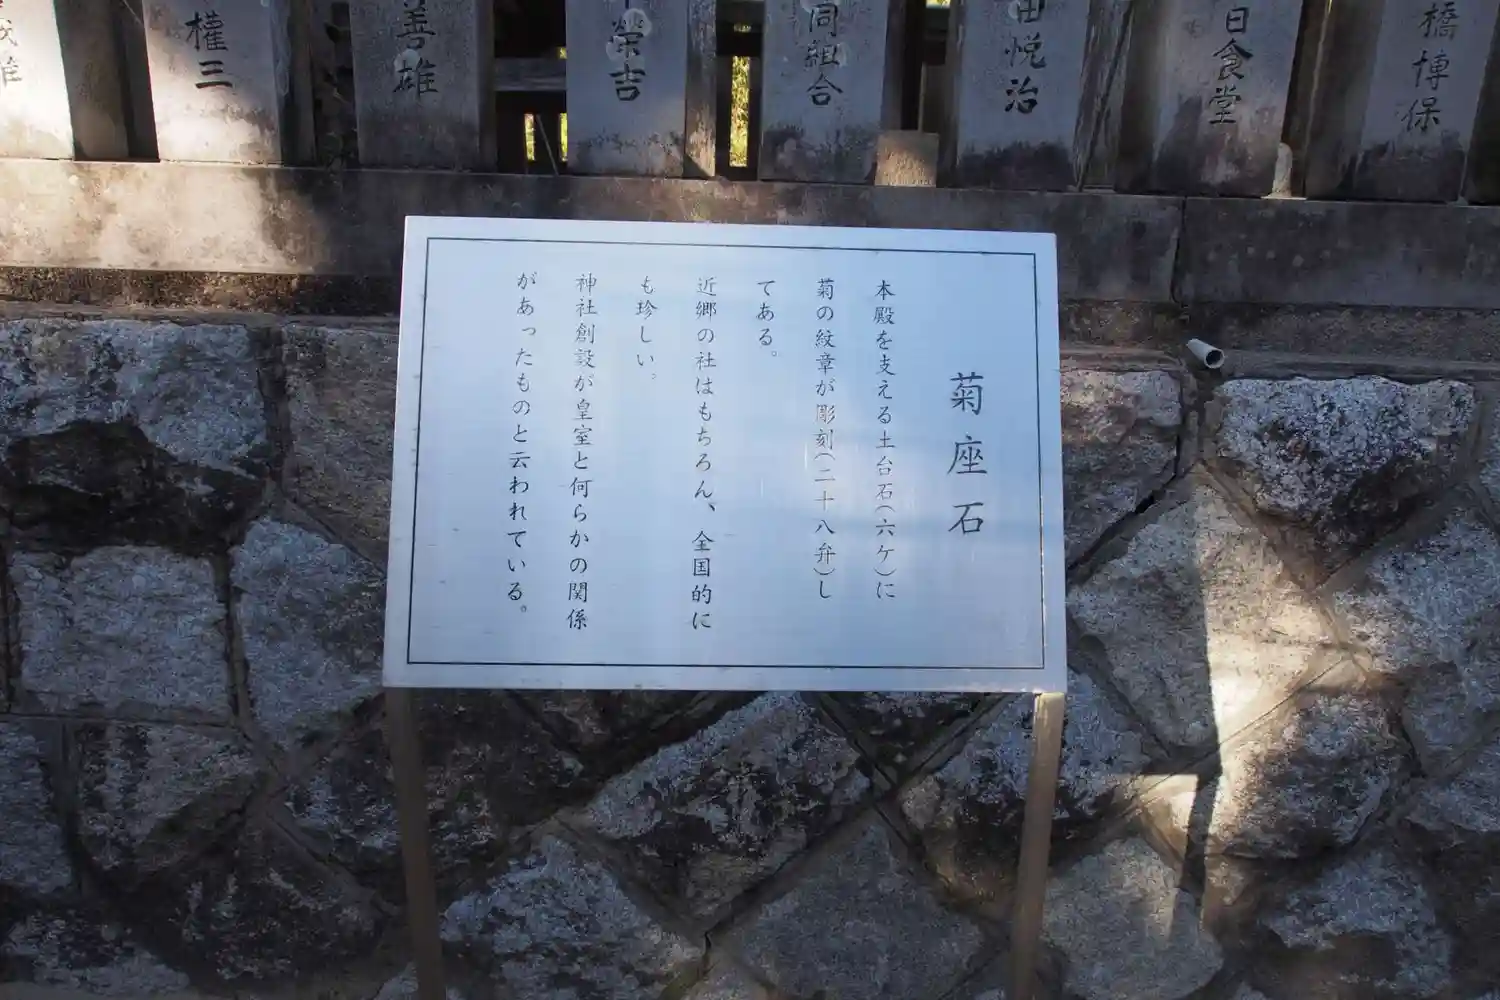 菊座石
本殿を支える土台石(六ケ)に
菊の紋章が彫刻(二十八弁)し
てある。
近郷の社はもちろん、全国的に
も珍しい。
神社創設が皇室と何らかの関係
があったものと云われている。
橋博保
日食堂
田悦治
同組合
榮吉
善雄
權三